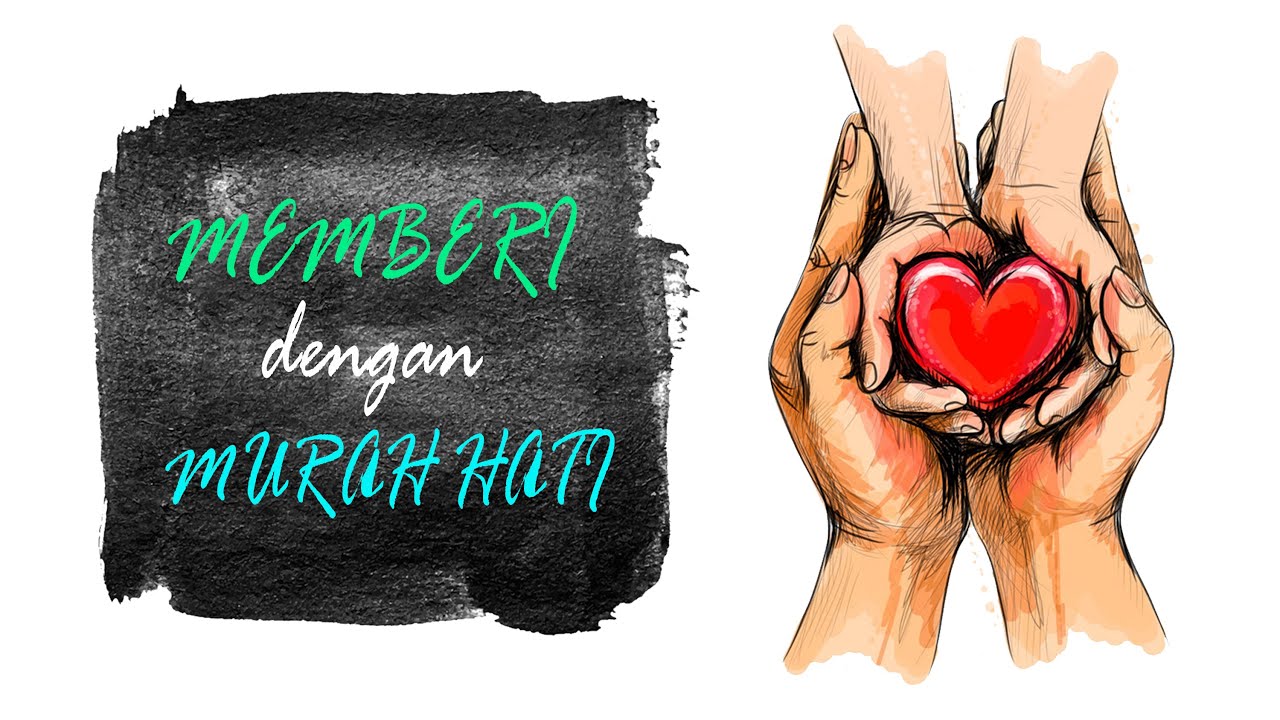 MEMBERI
dengan
MURAH HATI